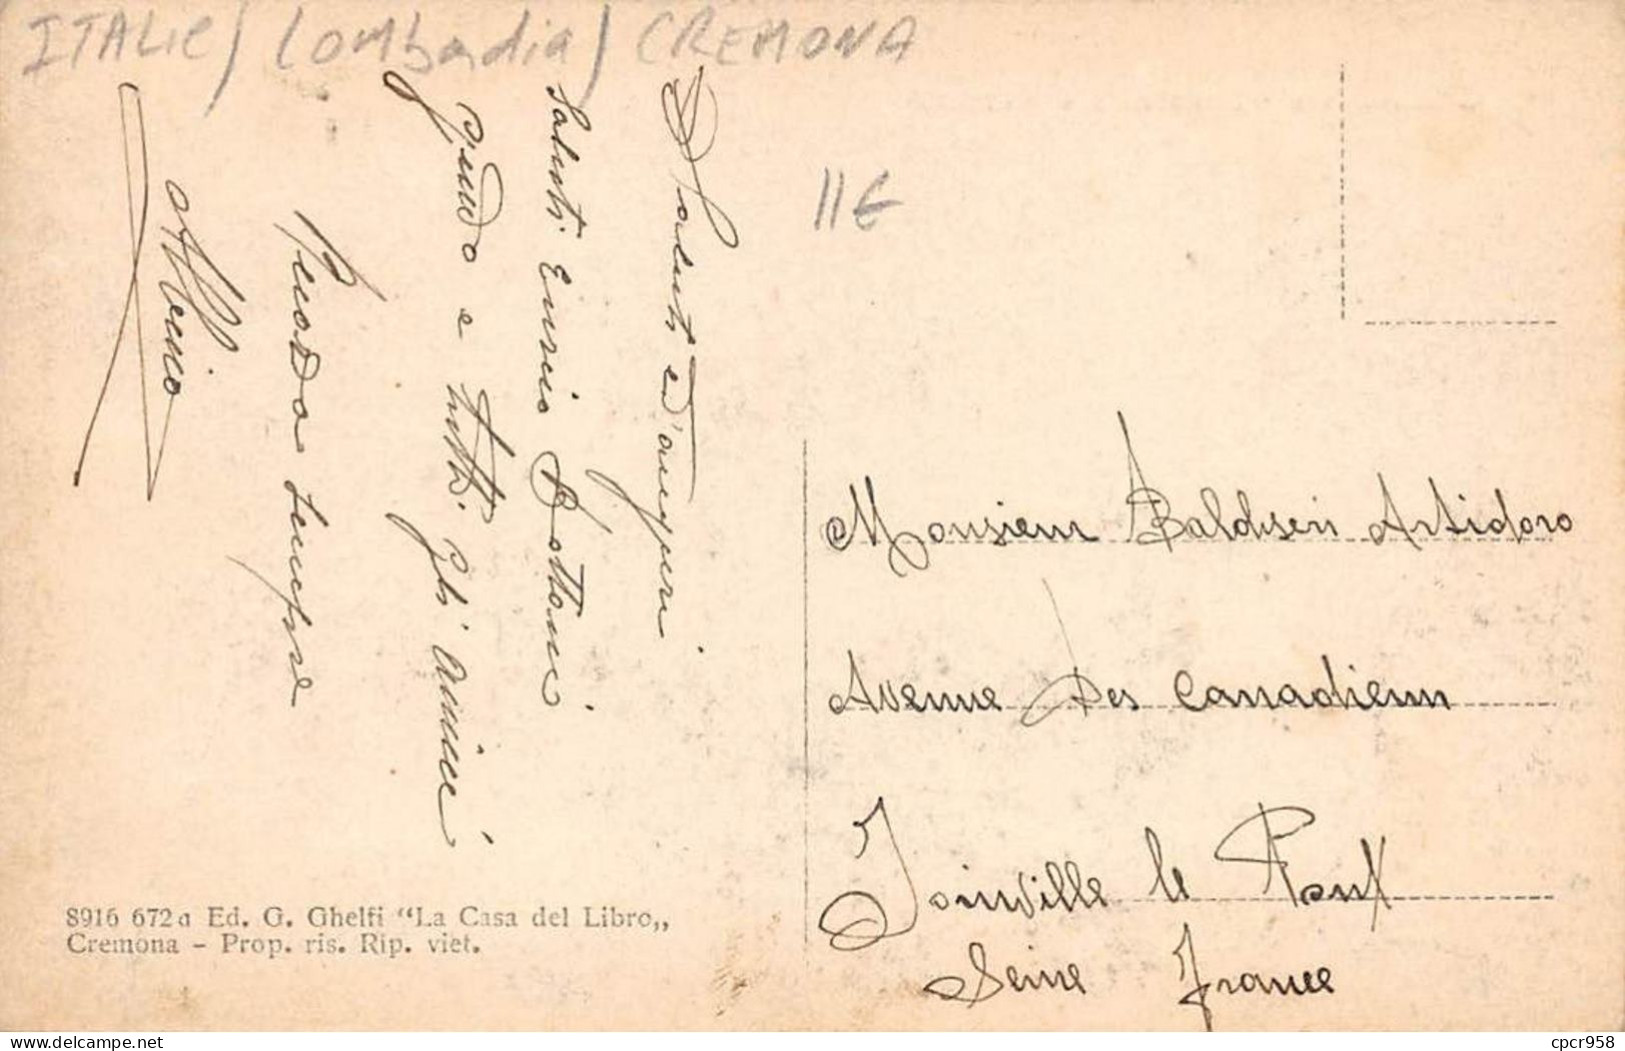 ITALIE / Lombadia / CREMONA
11€
Saluti ed'auguri
Saluti Ennio Bottoni
Guido e tutti gli amici
Ricorda sempre
Monsieur Baldisen Artidoro
Avenue Des Canadienn
Joinville le Pont
Seine France
8916 672a Ed. G. Ghelfi “La Casa del Libro„
Cremona - Prop. ris. Rip. viet.
Delcampe.net
cpcr958